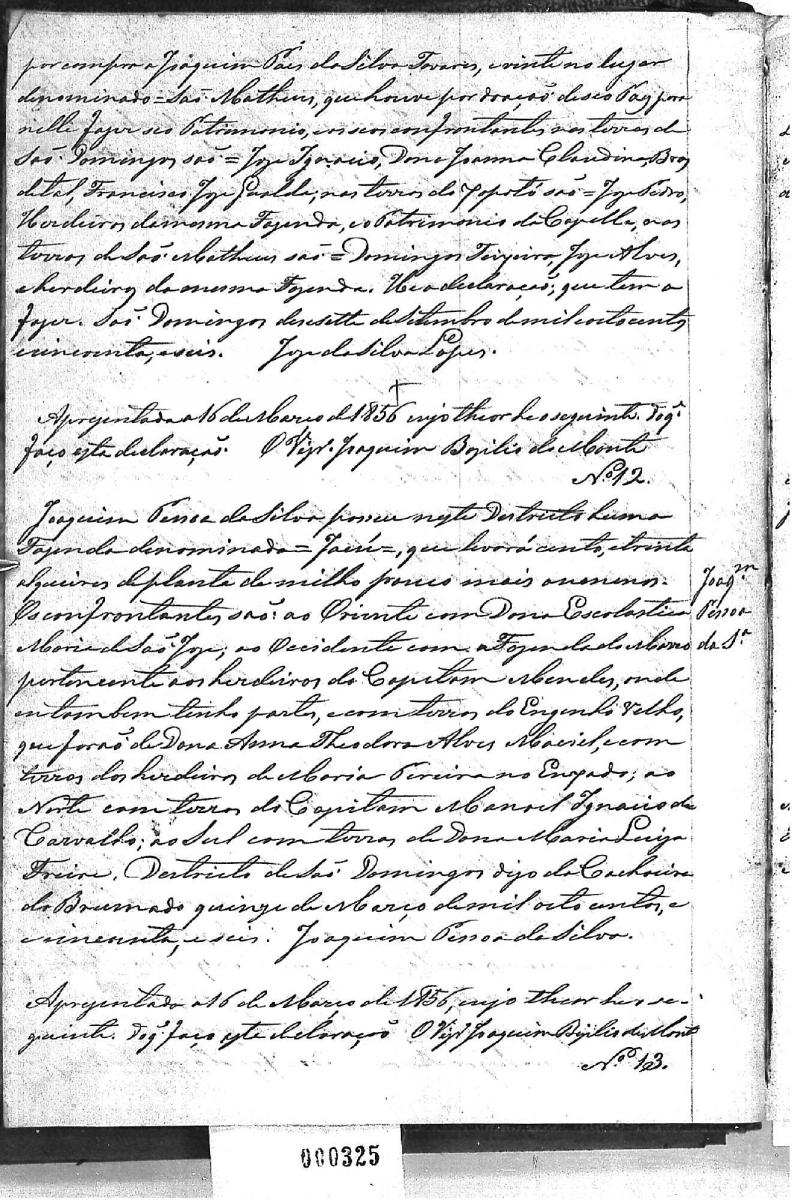 por compra a Joaquim Paes da Silva Tavares, e vinte no lugar
denominado = Saõ Matheus, que houve por doaçaõ de seo Pay para
nelle fazer seo Patrimonio, e os seos confrontantes nas terras de
Saõ Domingos saõ = Joze Ignacio, Dona Joanna Claudina, Bras
de tal, Francisco Joze, nas terras do Xopotó saõ = Joze Pedro,
Herdeiros da mesma Fazenda, e o Patrimonio da Capella, nas
terras de Saõ Matheus saõ = Domingos Teixeira, Joze Alves,
e herdeiros da mesma Fazenda. He a declaraçaõ, que tem a
fazer. Saõ Domingos desesette de Setembro de mil oito centos
e cincoenta, e seis. Joze da Silva Lopes.
Aprezentada a 16 de Março de 1856 cujo theor he o seguinte. Doq.^e
faço esta declaraçaõ. O Vigr.^o Joaquim Bazilio do Monte
N.^o 12.
Joaquim Pessoa da Silva possue neste Destricto huma
Fazenda denominada = Jacú =, que levará cento, e trinta
alqueires de planta de milho pouco mais ou menos.
Os confrontantes saõ: ao Oriente com Dona Escolastica
Maria de Saõ Joze; ao Occidente com a Fazenda do Morro
pertencente aos herdeiros do Capitam Mendes, onde
en tambem tenho partes, e com terras do Engenho Velho,
que foraõ de Dona Anna Theodora Alves Maciel, e com
terras dos herdeiros de Maria Pereira no; ao
Norte com terras do Capitam Manoel Ignacio de
Carvalho; ao Sul com terras de Dona Maria Luiza
Freire. Destricto de Saõ Domingos digo da Cachoeira
do Brumado quinze de Março de mil oito centos, e
e cincoenta, e seis. Joaquim Pessoa da Silva.
Joaq.^m
Pessoa
da S.^a
Aprezentada a 16 de Março de 1856, cujo theor he o se-
guinte. Doq.^e faço esta declaraçaõ O Vigr.^o Joaquim Bazilio do Mont
N.^o 13.
000325